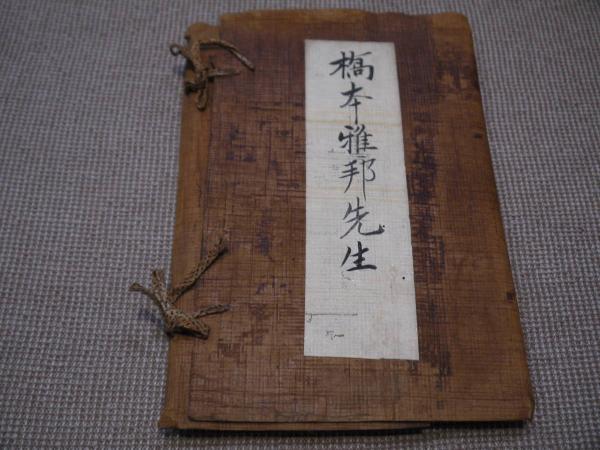 橋本雅邦先生